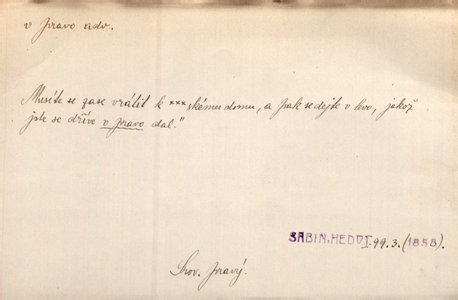 v pravo adv.
Musíte se zase vrátit k ***skému domu, a pak se dejte v levo, jakož
jste se dříve v pravo dal."
SABIN. HEDV. I. 99. 3. (1858).
Srov. pravý.